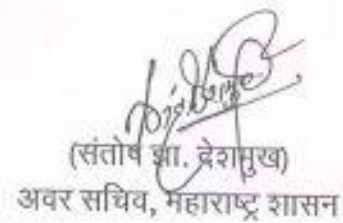 (संतोष झा. देशमुख)
अवर सचिव, महाराष्ट्र शासन